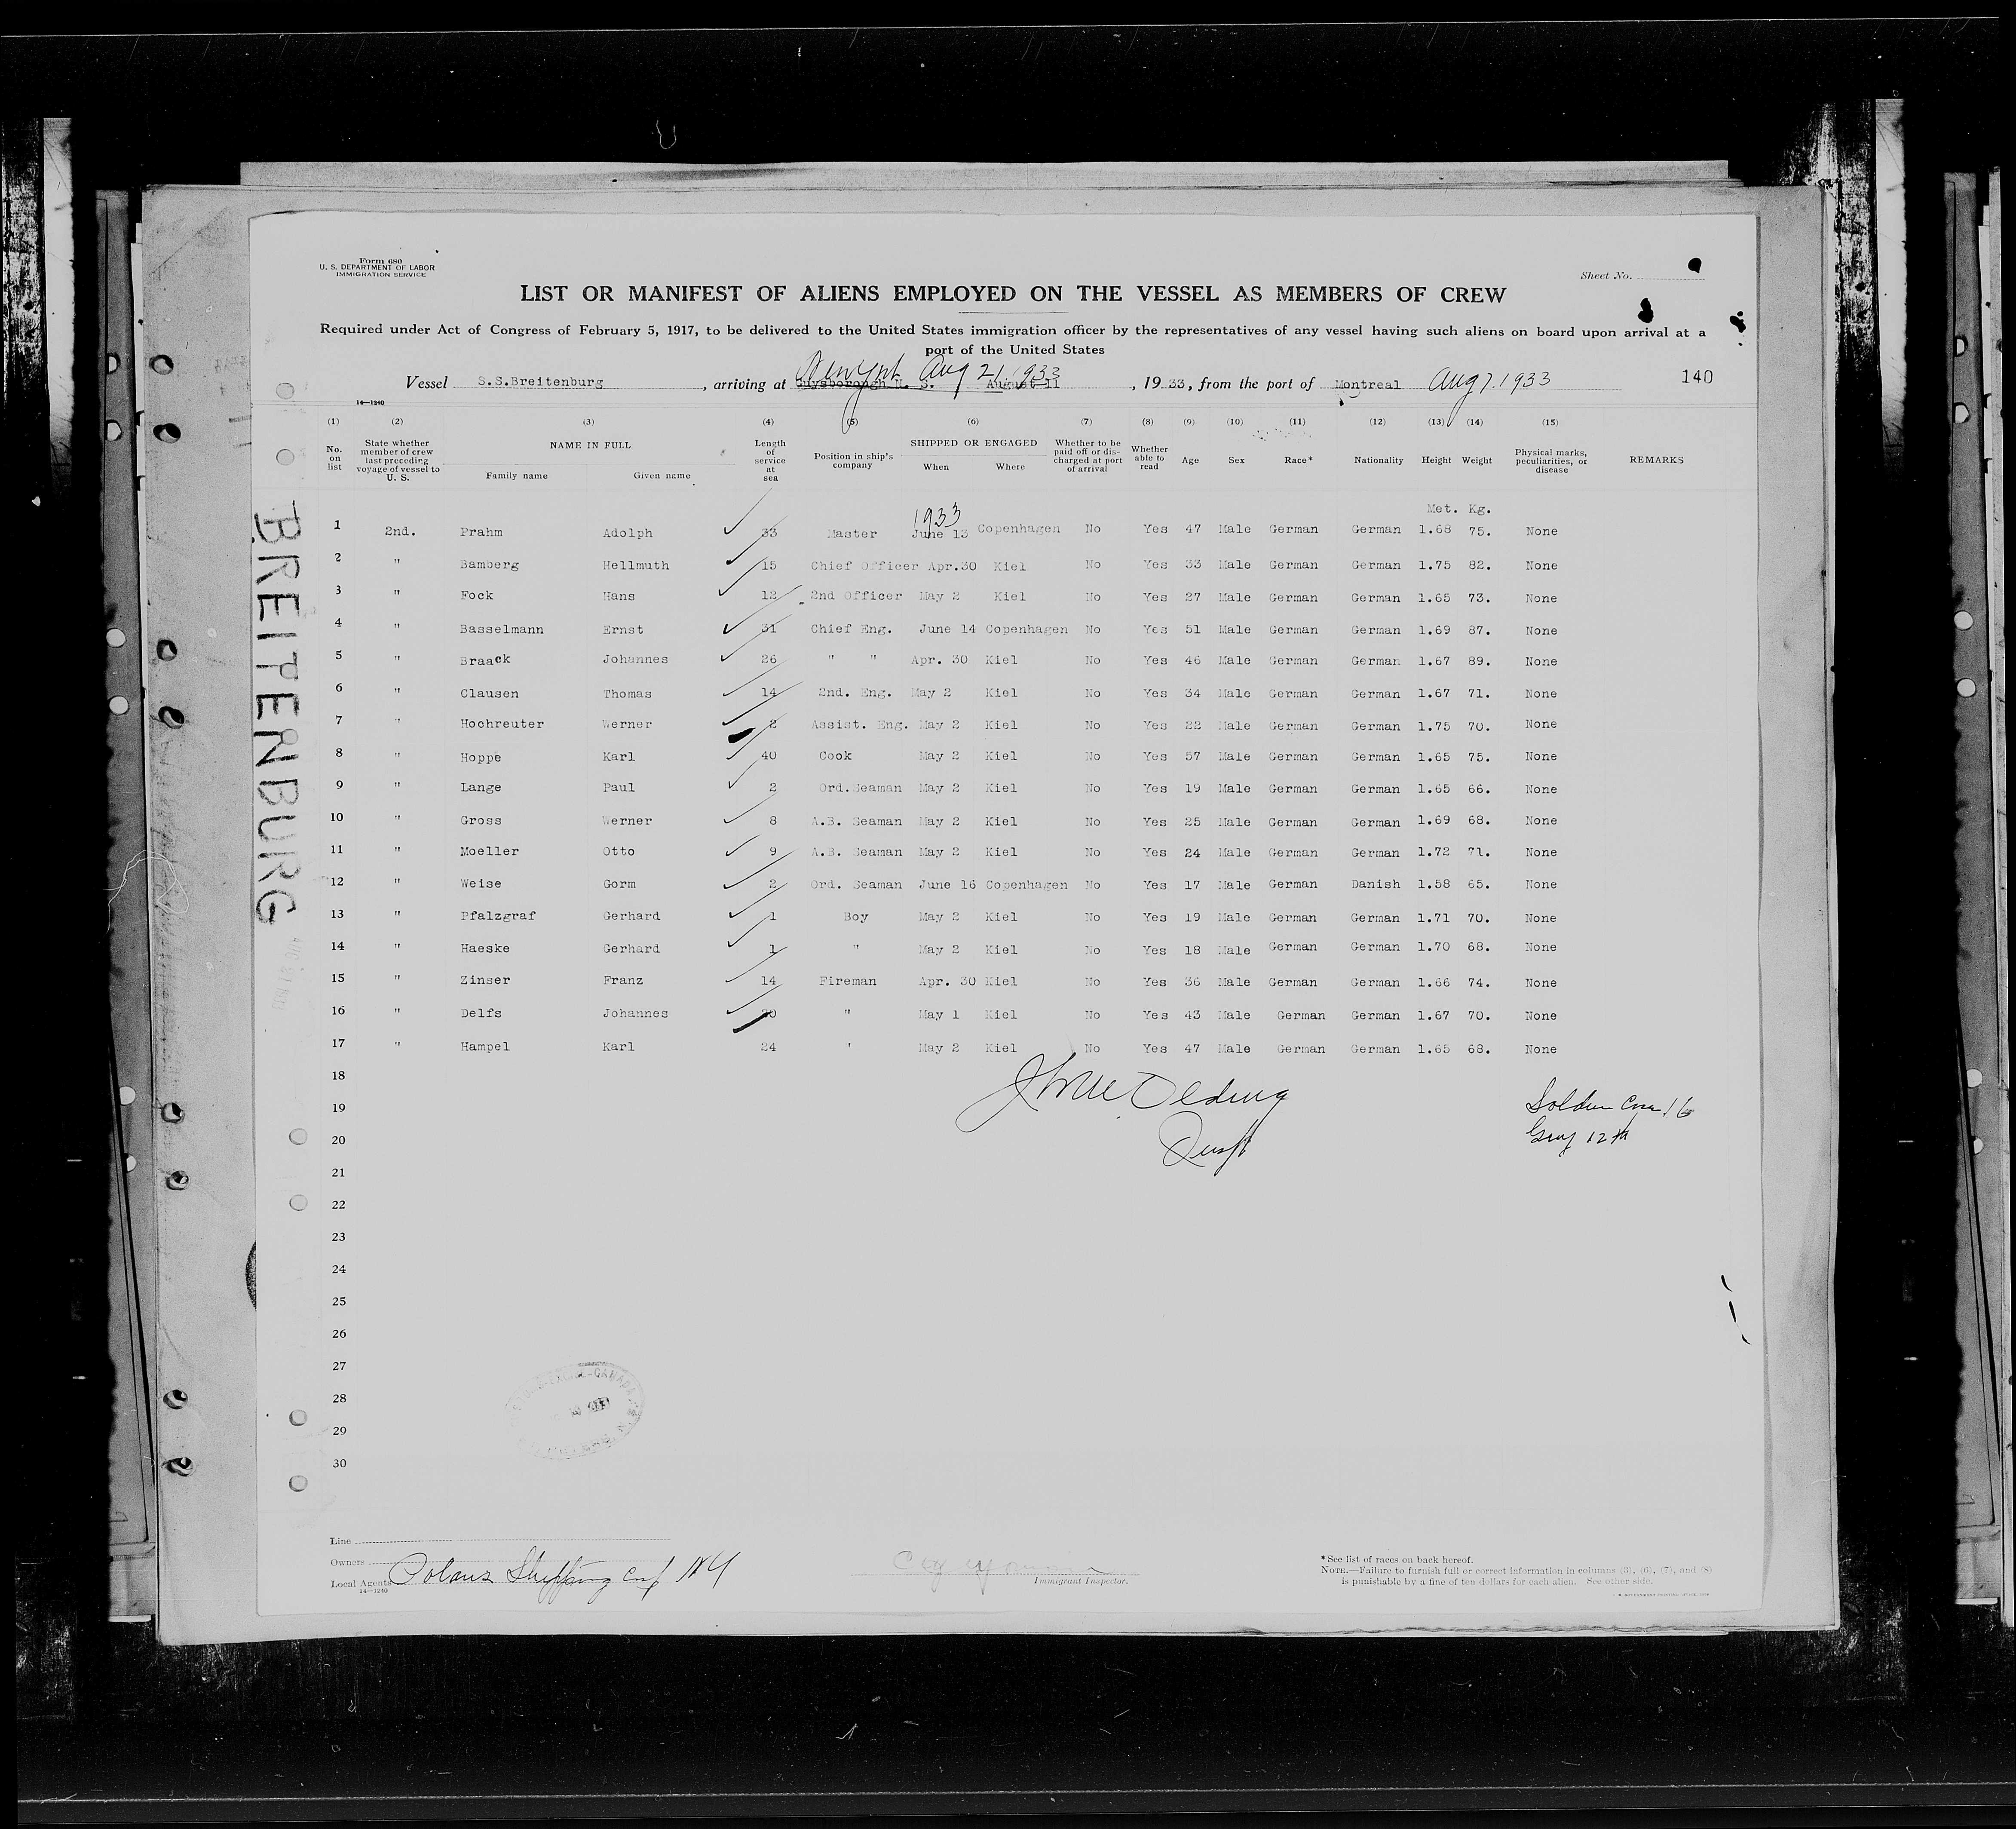 Form 680
U. S. DEPARTMENT OF LABOR
IMMIGRATION SERVICE
Sheet No.
LIST OR MANIFEST OF ALIENS EMPLOYED ON THE VESSEL AS MEMBERS OF CREW
Required under Act of Congress of February 5, 1917, to be delivered to the United States immigration officer by the representatives of any vessel having such aliens on board upon arrival at a
port of the United States
New York Aug 21, 1933
Vessel S.S.Breitenburg, arriving at Guysborough N. S. August 11, 1933, from the port of Montreal Aug 7. 1933 140
14—1240
(1) (2) (3) (4) (5) (6) (7) (8) (9) (10) (11) (12) (13) (14) (15)
No. on list State whether member of crew last preceding voyage of vessel to U. S. NAME IN FULL Family name Given name Length of service at sea Position in ship's company SHIPPED OR ENGAGED When Where Whether to be paid off or discharged at port of arrival Whether able to read Age Sex Race* Nationality Height Weight Physical marks, peculiarities, or disease REMARKS
1933 Met. Kg.
1 2nd. Prahm Adolph 33 Master June 13 Copenhagen No Yes 47 Male German German 1.68 75. None
2 " Bamberg Hellmuth 15 Chief Officer Apr.30 Kiel No Yes 33 Male German German 1.75 82. None
3 " Fock Hans 12 2nd Officer May 2 Kiel No Yes 27 Male German German 1.65 73. None
4 " Basselmann Ernst 31 Chief Eng. June 14 Copenhagen No Yes 51 Male German German 1.69 87. None
5 " Braack Johannes 26 " " Apr. 30 Kiel No Yes 46 Male German German 1.67 89. None
6 " Clausen Thomas 14 2nd. Eng. May 2 Kiel No Yes 34 Male German German 1.67 71. None
7 " Hochreuter Werner 2 Assist. Eng. May 2 Kiel No Yes 22 Male German German 1.75 70. None
8 " Hoppe Karl 40 Cook May 2 Kiel No Yes 57 Male German German 1.65 75. None
9 " Lange Paul 2 Ord.Seaman May 2 Kiel No Yes 19 Male German German 1.65 66. None
10 " Gross Werner 8 A.B. Seaman May 2 Kiel No Yes 25 Male German German 1.69 68. None
11 " Moeller Otto 9 A.B. Seaman May 2 Kiel No Yes 24 Male German German 1.72 71. None
12 " Weise Gorm 2 Ord. Seaman June 16 Copenhagen No Yes 17 Male German Danish 1.58 65. None
13 " Pfalzgraf Gerhard 1 Boy May 2 Kiel No Yes 19 Male German German 1.71 70. None
14 " Haeske Gerhard 1 " May 2 Kiel No Yes 18 Male German German 1.70 68. None
15 " Zinser Franz 14 Fireman Apr. 30 Kiel No Yes 36 Male German German 1.66 74. None
16 " Delfs Johannes 20 " May 1 Kiel No Yes 43 Male German German 1.67 70. None
17 " Hampel Karl 24 " May 2 Kiel No Yes 47 Male German German 1.65 68. None
18
19
20
21
22
23
24
25
26
27
28
29
30
BREITENBURG
Line
Owners
Local Agents Polaris Shipping Corp NY
14—1240
Immigrant Inspector.
*See list of races on back hereof.
NOTE.—Failure to furnish full or correct information in columns (3), (6), (7), and (8)
is punishable by a fine of ten dollars for each alien. See other side.